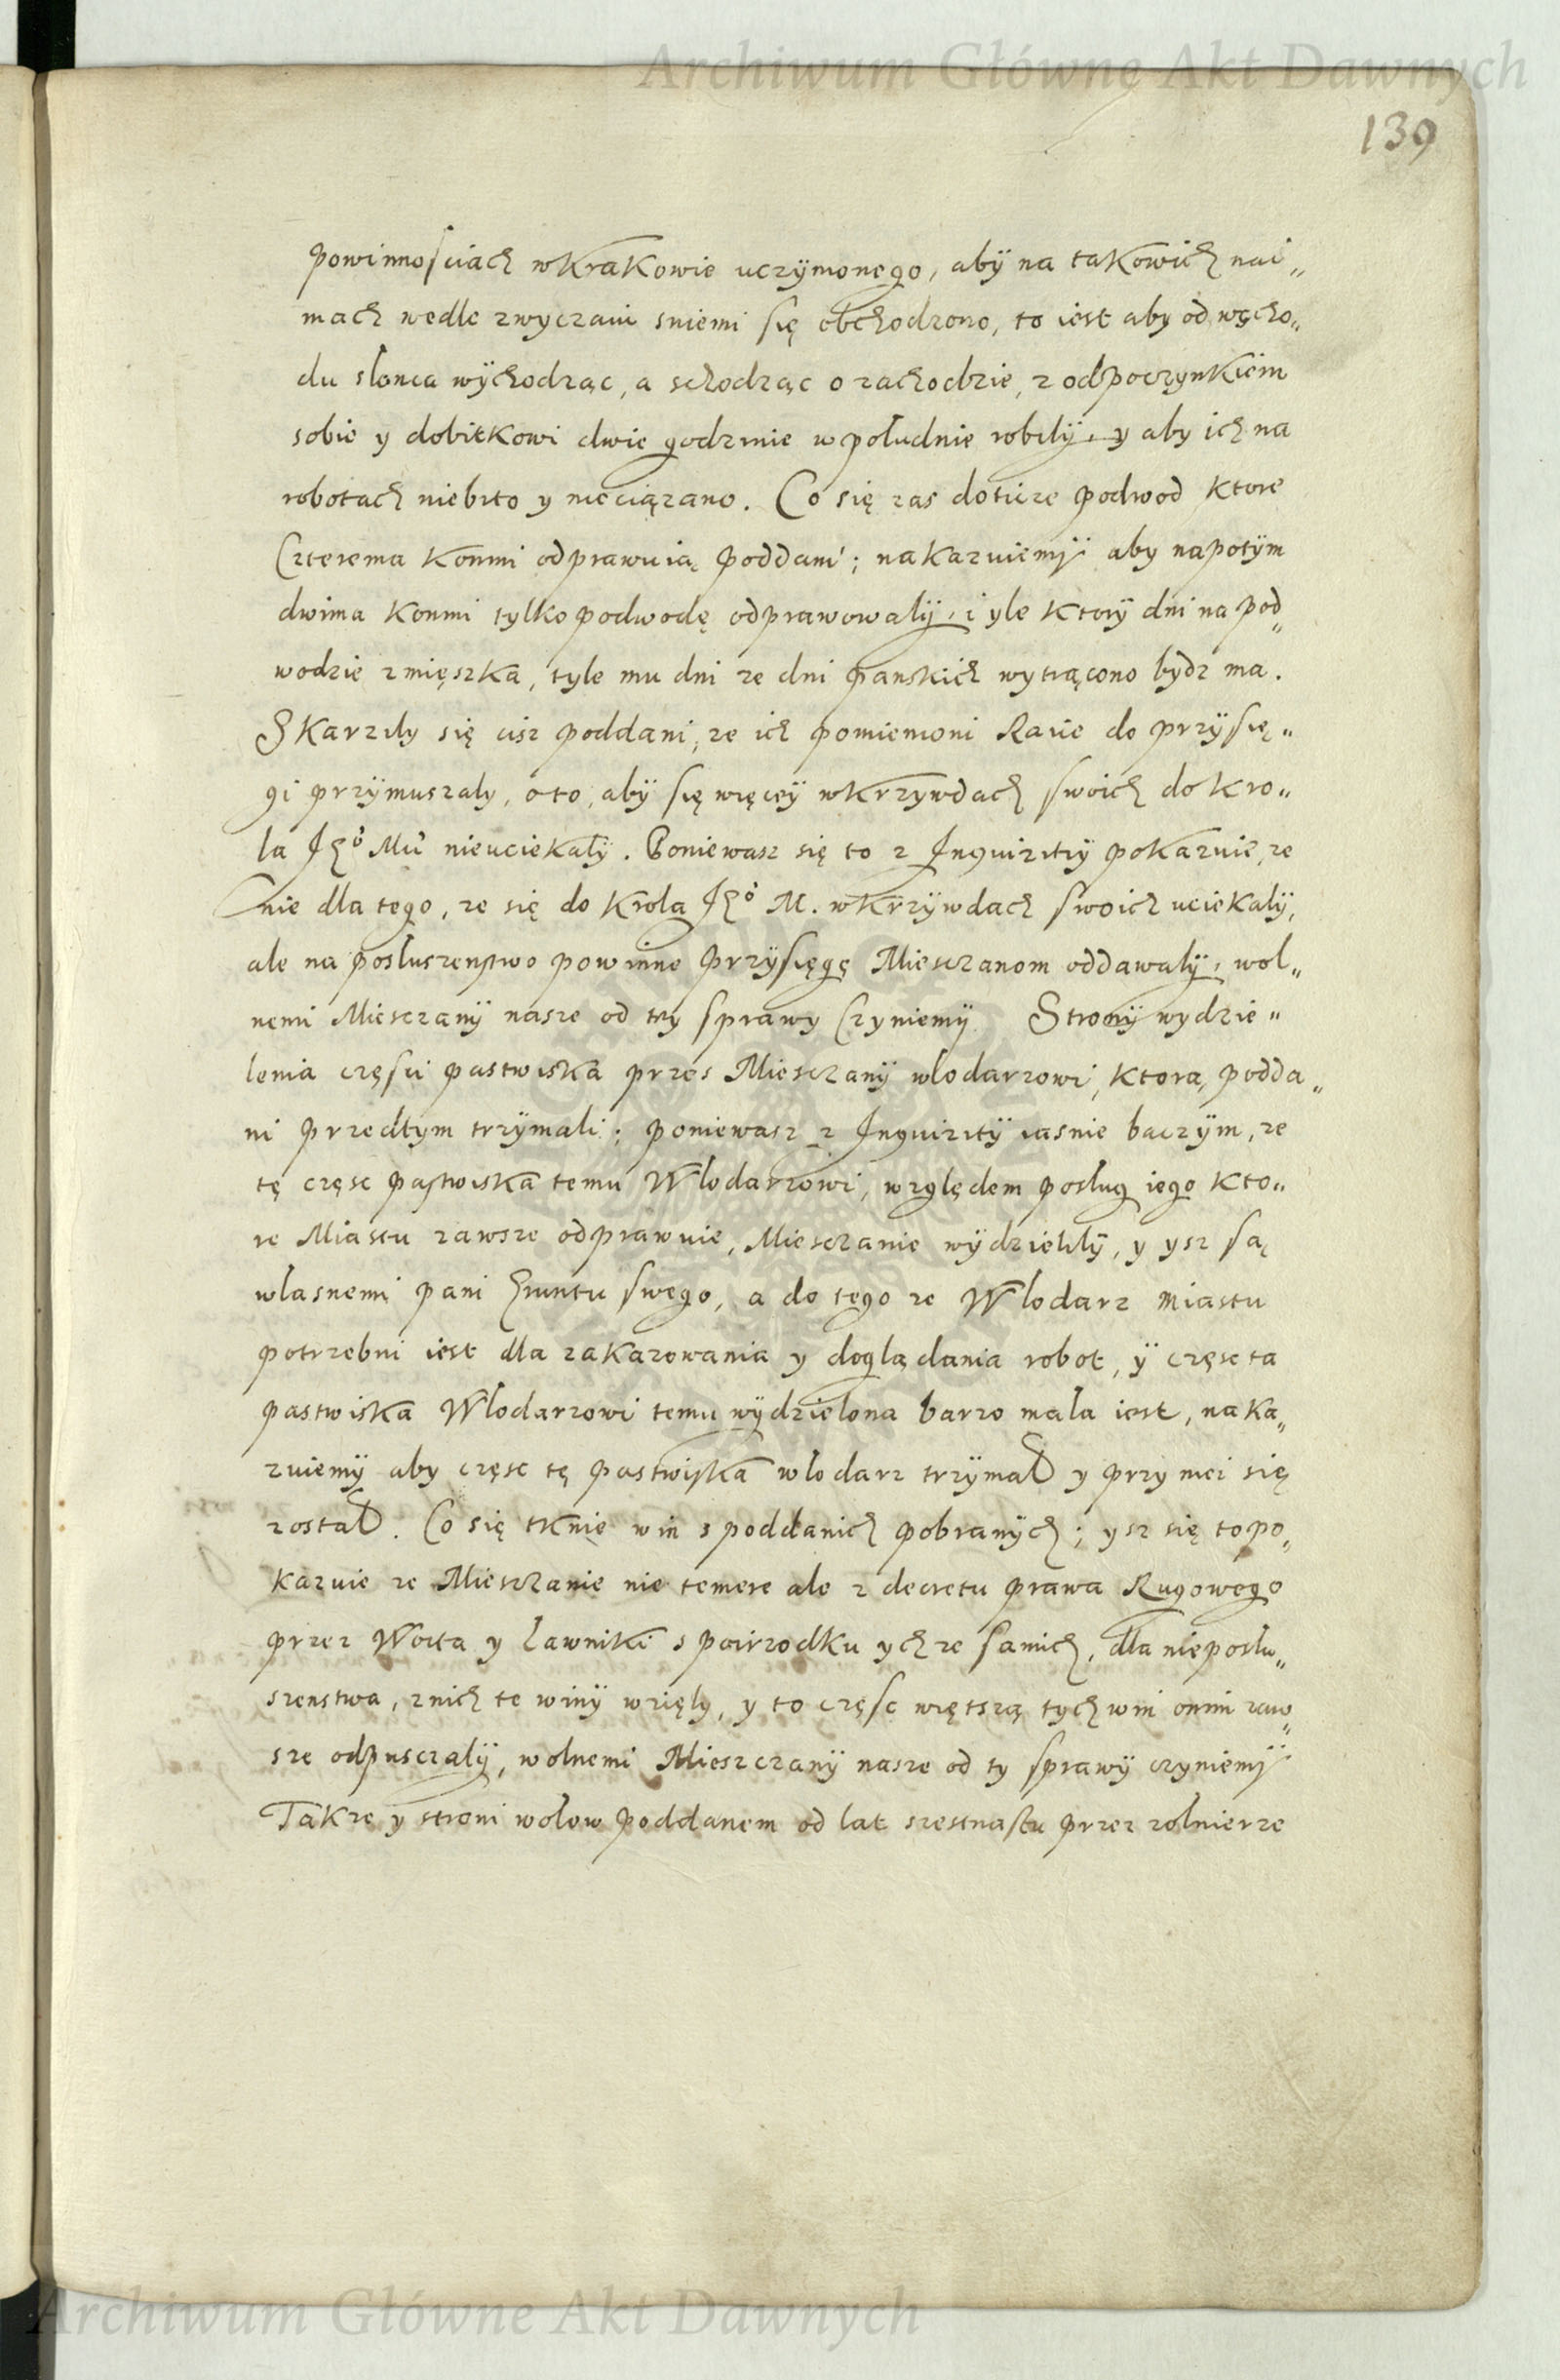 Archiwum Główne Akt Dawnych
139
powinnosciach w Krakowie uczÿnionego, abÿ na takowich nai„
mach wedle zwyczaiu sniemi się obchodzono, to iest aby od wscho„
du słonca wÿchodząc, a schodząc o zachodzie, z odpoczynkiem
sobie y dobitkowi dwie godzinie w południe robilÿ, y aby ich na
robotach niebito y nieciązano. Co się zas doticze podwod ktore
Czterema konmi odprawuią poddani; nakazuiemÿ aby napotÿm
dwima konmi tylko podwodę odprawowalÿ, i yle ktorÿ dni na pod„
wodzie zmięszka, tyle mu dni ze dni panskich wytrącono bydz ma.
Skarzily się cisz poddani, ze ich pomienioni Raice do przÿsię„
gi przÿmuszaly, o to, abÿ się więceÿ w krzywdach swoich do kro„
la Jeº Mci nieuciekalÿ. Poniewasz się to z Inquizitiÿ pokazuie, ze
nie dla tego, ze się do Krola Jeº M. w krzÿwdach swoich uciekalÿ,
ale na posłuszenstwo powinne przÿsięgę Miesczanom oddawalÿ, wol„
nemi Miesczanÿ nasze od tey sprawy Czyniemÿ Stronÿ wydzie„
lenia częsci pastwiska przes Miesczanÿ włodarzowi, ktorą podda„
ni przedtym trzÿmali; poniewasz z Inquizitÿ iasnie baczÿm, ze
tę częsc pastwiska temu Włodarzowi, względem posług iego kto„
re Miastu zawsze odprawuie, Miesczanie wÿdzielilÿ, y ysz są
własnemi pani gruntu swego, a do tego ze Włodarz miastu
potrzebni iest dla zakazowania y doglądania robot, ÿ częsc ta
pastwiska Włodarzowi temu wÿdzielona barzo mała iest, naka„
zuiemÿ aby częsc tę pastwiska włodarz trzÿmał y przy niei się
został. Co się tknie win s poddanich pobranÿch; ysz się to po„
kazuie ze Miesczanie nie temere ale z decretu prawa Rugowego
przez Woita y Ławniki s poirzodku ychze samich, dla nieposłu„
szenstwa, z nich te winÿ wzięly, y to częsc więtszą tych win onim zaw„
sze odpusczalÿ, wolnemi Miesczanÿ nasze od ty sprawÿ czyniemÿ
Takze y stroni wołow poddanem od lat szestnastu przez zołnierze
Archiwum Główne Akt Dawnych